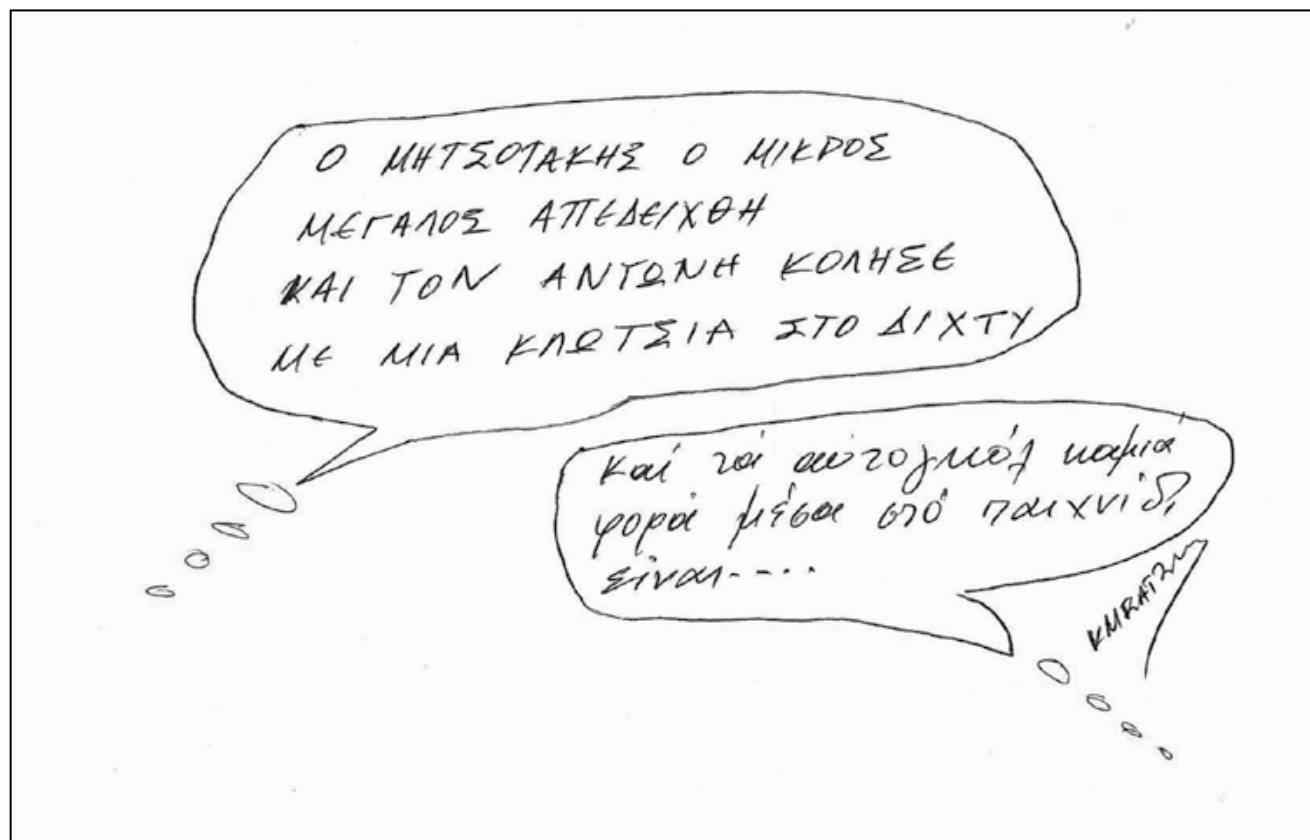 Ο ΜΗΤΣΟΤΑΚΗΣ Ο ΜΙΚΡΟΣ
ΜΕΓΑΛΟΣ ΑΠΕΔΕΙΧΘΗ
ΚΑΙ ΤΟΝ ΑΝΤΩΝΗ ΚΟΛΗΣΕ
ΜΕ ΜΙΑ ΚΛΩΤΣΙΑ ΣΤΟ ΔΙΧΤΥ
καί τά αὐτογκόλ καμιά
φορά μέσα στό παιχνίδι
εἶναι....